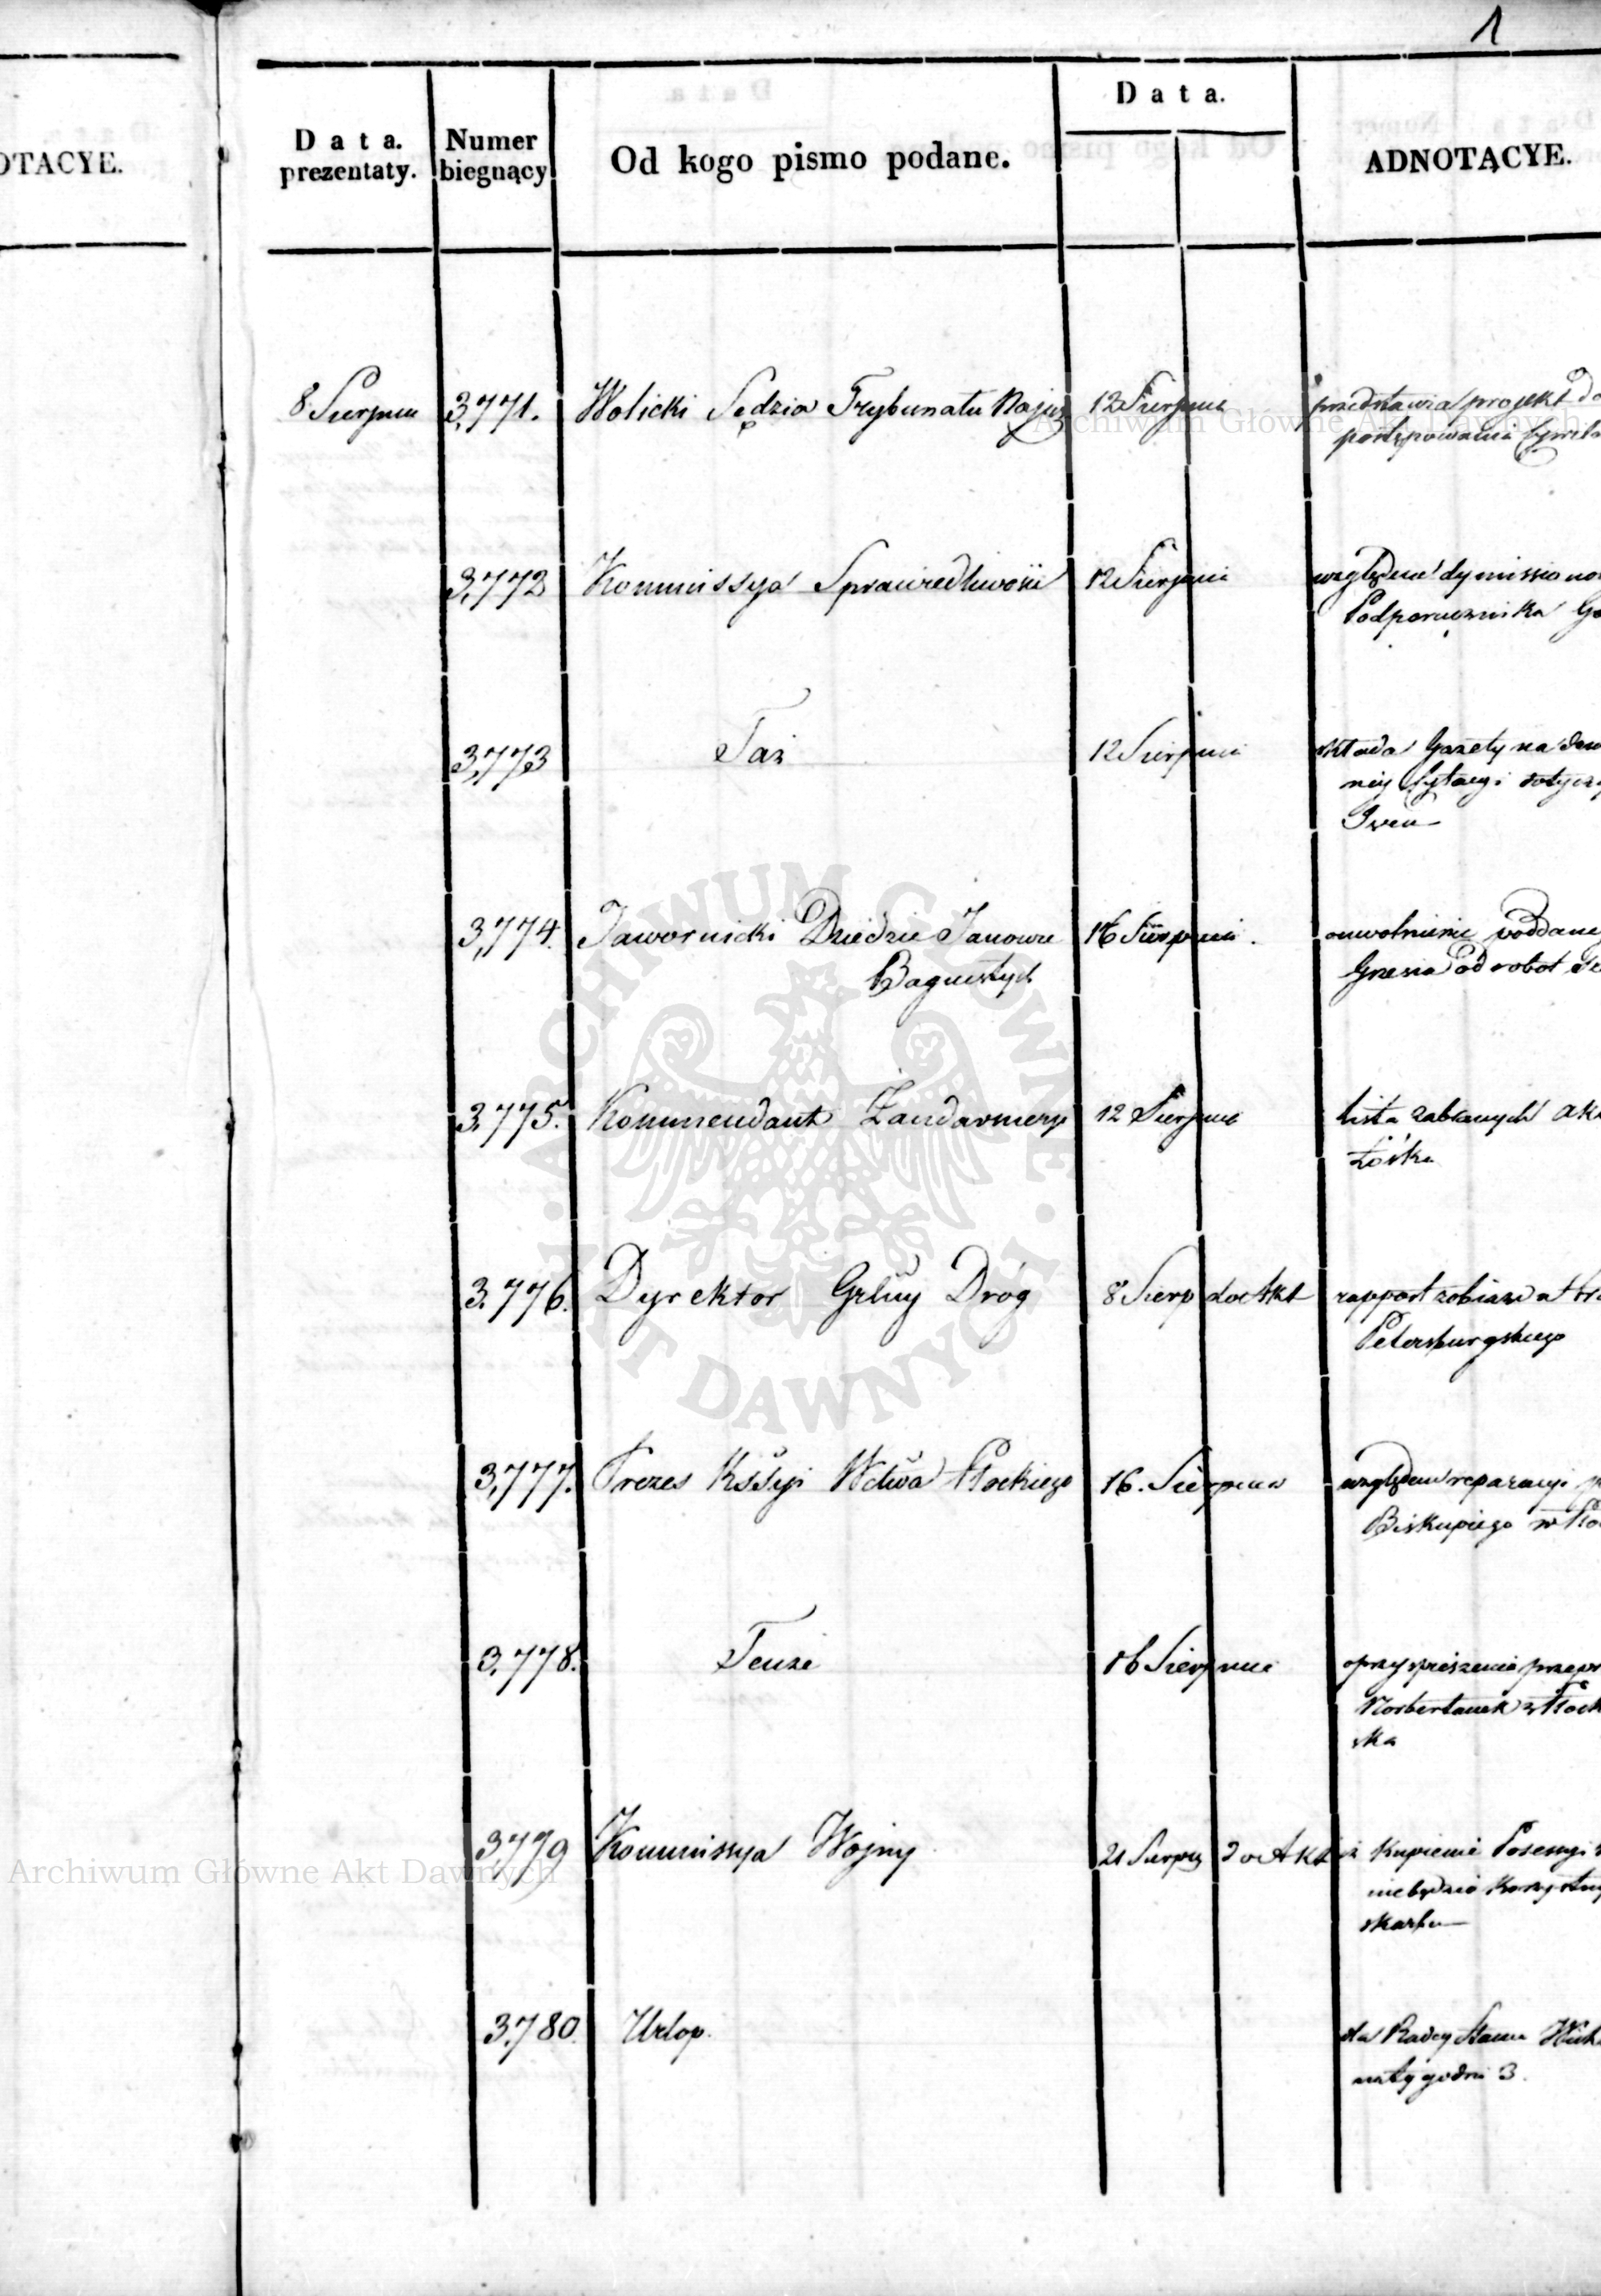 1
OTACYE.
Data.
prezentaty.
Numer
biegnący
Od kogo pismo podane.
Data.
ADNOTACYE.
8 Sierpnia 3,771. Wolicki Sędzia Trybunału Najwyż 12 Sierpnia przedstawia projekt do
postępowania
3,772 Kommissya Sprawiedliwości 12 Sierpnia względem dymissionow
Podporucznika
3,773 Taż 12 Sierpnia składa Gazety na
3,774. Jawornicki Dziedzic Janowa 16 Sierpnia. uwolnienie poddane
Grzesia od robot
3,775. Kommendant Żandarmeryi 12 Sierpnia lista zabranych
Łóżka
3.776. Dyrektor Grlny Dróg 8 Sierp do Akt rapport z obiazdu
Petersburgskiego
3,777. Prezes Kssyi Wctwa Płockiego 16. Sierpnia względem reparacyi
Biskupiego w
3,778. Tenże 16 Sierpnia o przyspieszenie
Norbertanek z Płock
ska
3,779 Kommissya Wojny 21 Sierpn do Akt iż kupienie Possessyi
niebędzie korzystny
skarbu
3,780. Urlop. dla Radcy Stanu
na tygodni 3.
Archiwum Główne Akt Dawnych
Archiwum Główne Akt Dawnych
ARCHIWUM GŁÓWNE AKT DAWNYCH